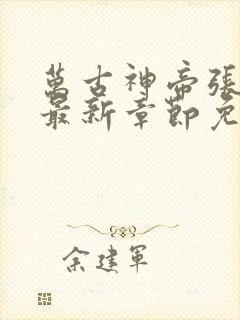 萬古神帝張
最新章節免
余建軍